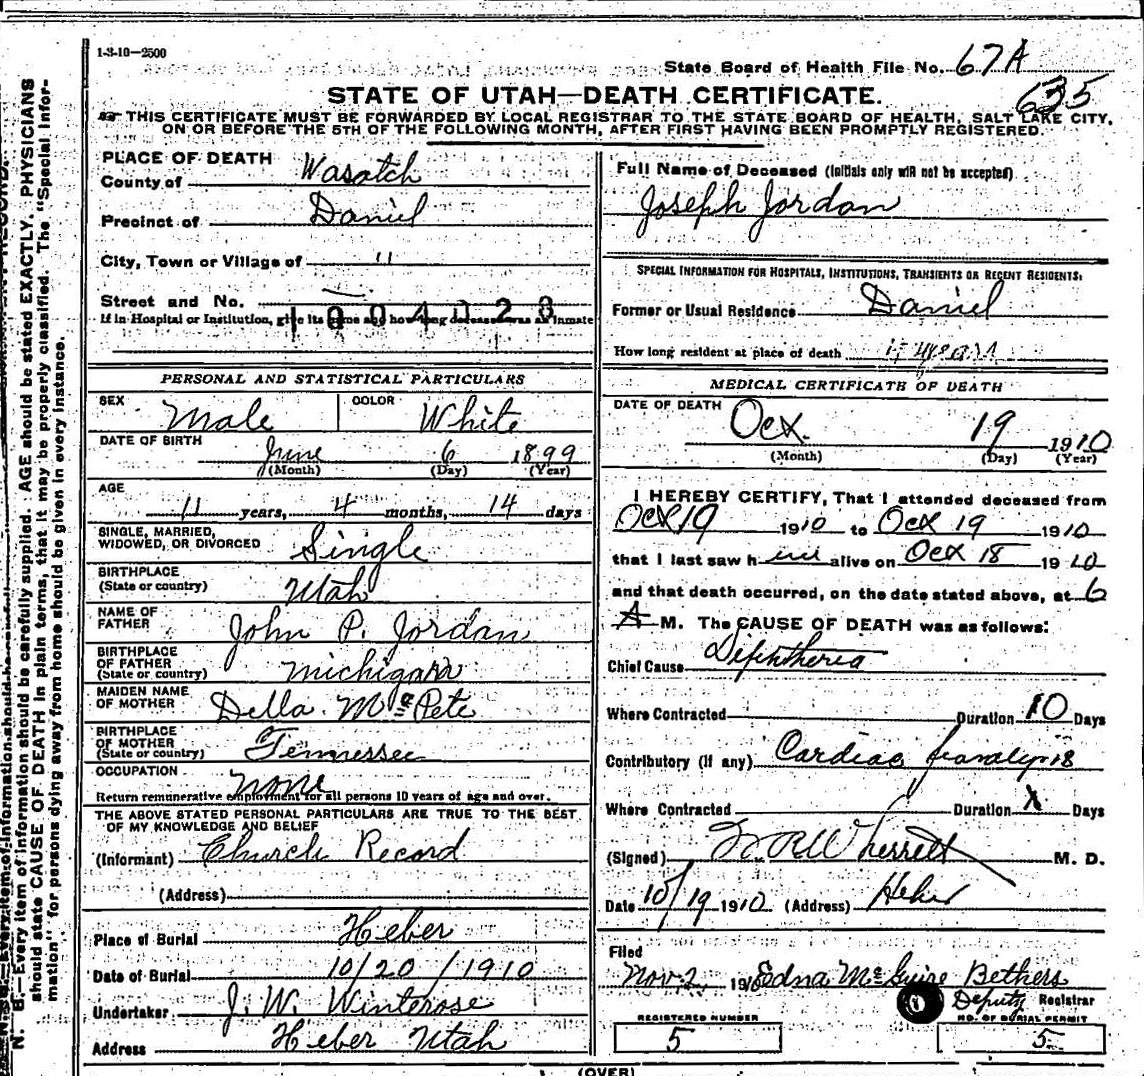 1-3-10—2500
State Board of Health File No. 67A
635
STATE OF UTAH—DEATH CERTIFICATE.
THIS CERTIFICATE MUST BE FORWARDED BY LOCAL REGISTRAR TO THE STATE BOARD OF HEALTH, SALT LAKE CITY,
ON OR BEFORE THE 5TH OF THE FOLLOWING MONTH, AFTER FIRST HAVING BEEN PROMPTLY REGISTERED.
PLACE OF DEATH
County of Wasatch
Precinct of Daniel
City, Town or Village of "
Street and No. —
If in Hospital or Institution, give its name and how long deceased was an inmate
1904023
PERSONAL AND STATISTICAL PARTICULARS
SEX Male COLOR White
DATE OF BIRTH
June 6 1899
(Month) (Day) (Year)
AGE
11 years, 4 months, 14 days
SINGLE, MARRIED,
WIDOWED, OR DIVORCED Single
BIRTHPLACE
(State or country) Utah
NAME OF
FATHER John P. Jordan
BIRTHPLACE
OF FATHER
(State or country) Michigan
MAIDEN NAME
OF MOTHER Della Mc Pete
BIRTHPLACE
OF MOTHER
(State or country) Tennessee
OCCUPATION none
Return remunerative employment for all persons 10 years of age and over.
THE ABOVE STATED PERSONAL PARTICULARS ARE TRUE TO THE BEST
OF MY KNOWLEDGE AND BELIEF
(Informant) Church Record
(Address)
Place of Burial Heber
Date of Burial 10/20/1910
Undertaker J. W. Winterose
Address Heber Utah
Full Name of Deceased (Initials only will not be accepted)
Joseph Jordan
SPECIAL INFORMATION FOR HOSPITALS, INSTITUTIONS, TRANSIENTS OR RECENT RESIDENTS:
Former or Usual Residence Daniel
How long resident at place of death years
MEDICAL CERTIFICATE OF DEATH
DATE OF DEATH
Oct. 19 1910
(Month) (Day) (Year)
I HEREBY CERTIFY, That I attended deceased from
Oct 19 1910 to Oct 19 1910
that I last saw him alive on Oct 18 1910
and that death occurred, on the date stated above, at 6
A M. The CAUSE OF DEATH was as follows:
Chief Cause Diphtheria
Where Contracted Duration 10 Days
Contributory (if any) Cardiac paralysis
Where Contracted Duration x Days
(Signed) Wherrett M. D.
Date 10/19 1910 (Address) Heber
Filed
Nov. 2, 191 Edna McGuire Bethers
Deputy Registrar
REGISTERED NUMBER
5
NO. OF BURIAL PERMIT
5
(OVER)
N. B.—Every item of information should be carefully supplied. AGE should be stated EXACTLY. PHYSICIANS
should state CAUSE OF DEATH in plain terms, that it may be properly classified. The "Special Infor-
mation" for persons dying away from home should be given in every instance.